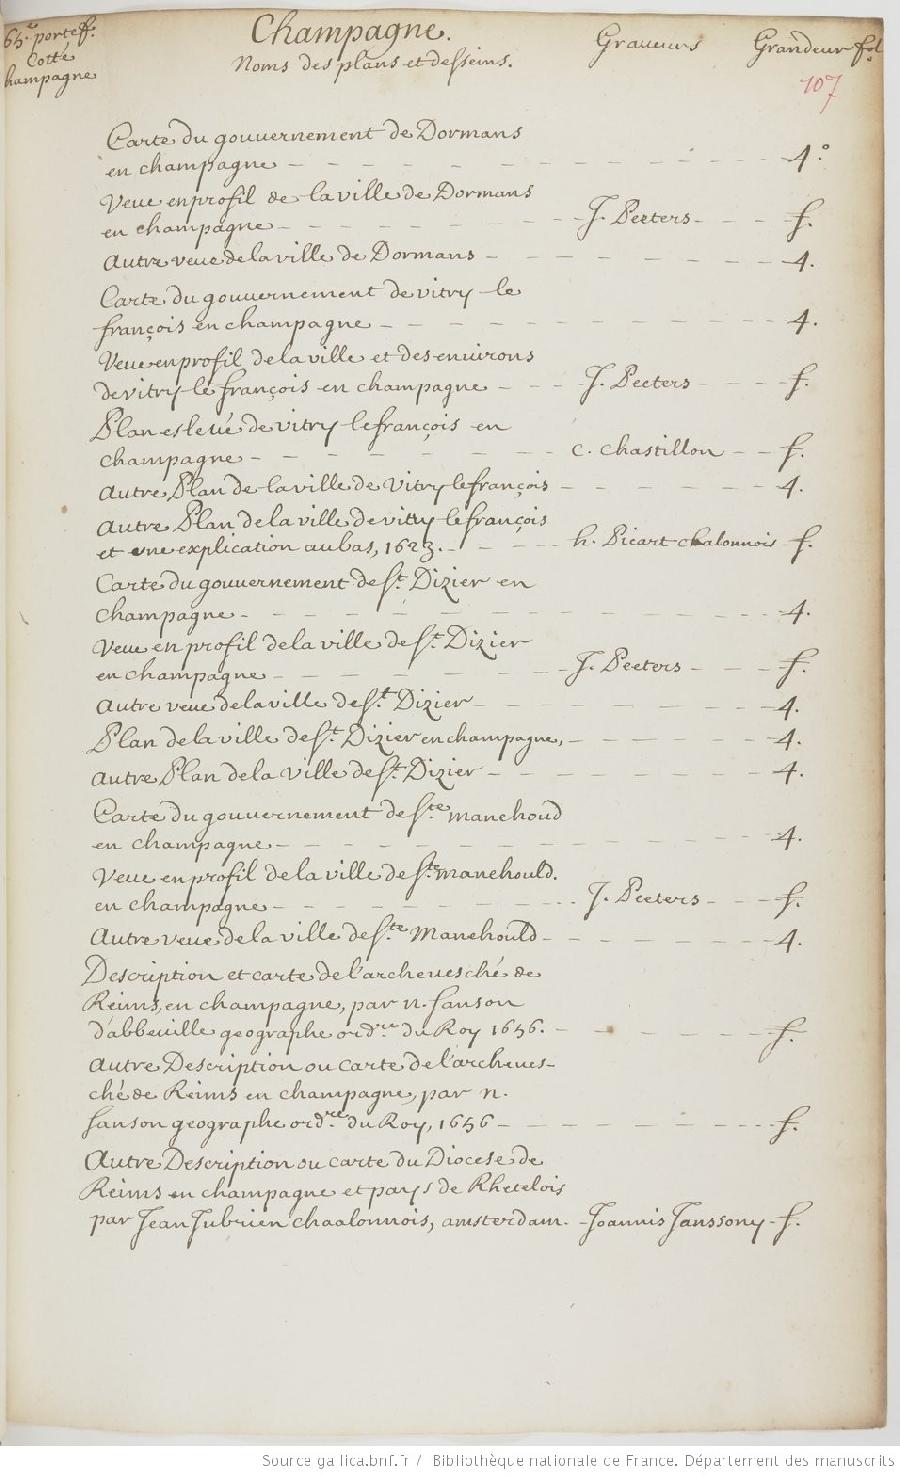 65.e portef.
Cotté
hampagne
Champagne.
Noms des plans et desseins.
Graveurs
Grandeur fol
107
Carte du gouvernement de Dormans
en champagne - - - - - - - 4.º
Veue en profil de la ville de Dormans
en champagne - - - - J. Peeters - - - f.
Autre veue de la ville de Dormans - - - - 4.
Carte du gouvernement de vitry le
françois en champagne - - - - - - 4.
Veue en profil de la ville et des environs
de vitry le françois en champagne - - - J. Peeters - - - f.
Plan eslevé de vitry le françois en
champagne - - - - - - c. chastillon - - f.
Autre Plan de la ville de Vitry le françois - - - - 4.
Autre Plan de la ville de vitry le françois
et une explication au bas, 1623. - - - - h. Picart chalonnois f.
Carte du gouvernement de St. Dizier en
champagne - - - - - - - 4.
Veue en profil de la ville de St. Dizier
en champagne - - - - - J. Peeters - - - f.
Autre veue de la ville de St. Dizier - - - - 4.
Plan de la ville de St. Dizier en champagne, - - - - 4.
Autre Plan de la Ville de St. Dizier - - - - 4.
Carte du gouvernement de Ste. manehoud
en champagne - - - - - - - 4.
Veue en profil de la ville de Ste. manehould.
en champagne - - - - - - J. Peeters - - - f.
Autre veue de la ville de Ste. Manehould - - - - 4.
Description et carte de l'archevesché de
Reims, en champagne, par n. sanson
d'abbeville geographe ord.re du Roy 1656. - - - - f.
Autre Description ou carte de l'archeves-
ché de Reims en champagne, par n.
sanson geographe ord.re du Roy, 1656 - - - - f.
Autre Description ou carte du Diocese de
Reims en champagne et pays de Rhetelois
par Jean Jubrien chaalonnois, amsterdam. - Joannis Janssony - f.
Source gallica.bnf.fr / Bibliothèque nationale de France. Département des manuscrits